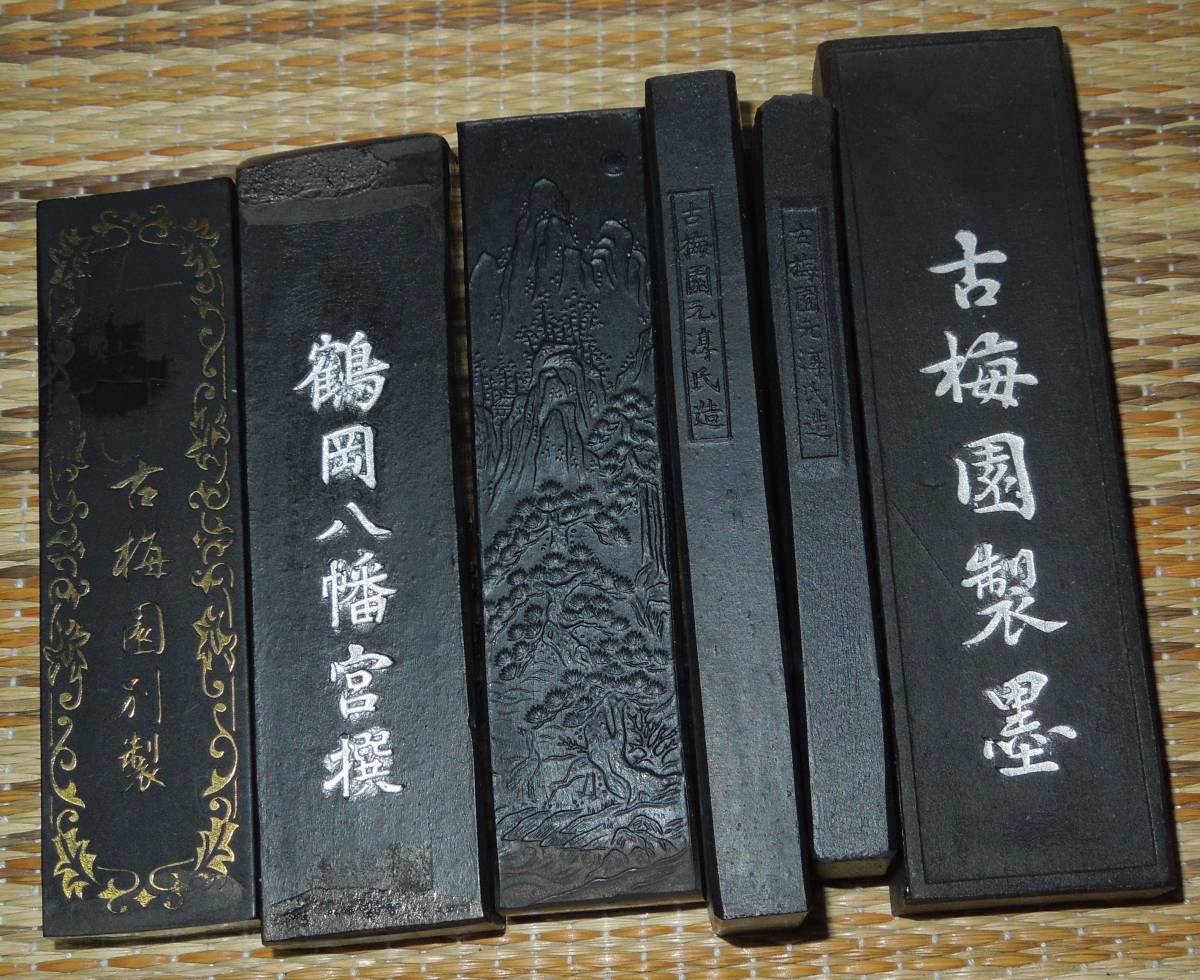 古梅園別製
鶴岡八幡宮撰
古梅園元享氏造
古梅園元淳氏造
古梅園製墨